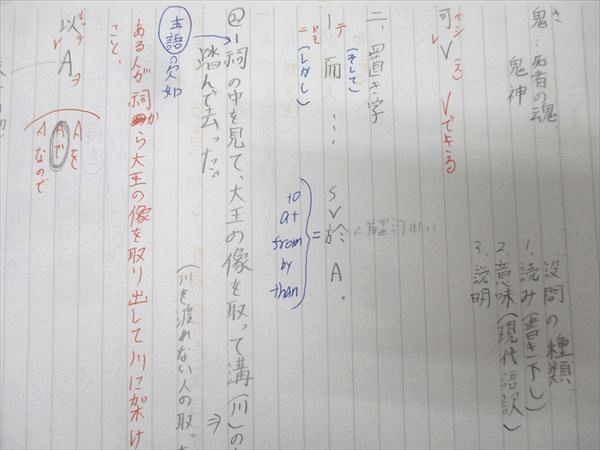 設問の種類
1. 読み(書き下し)
2. 意味(現代語訳)
3. 説明
鬼:死者の魂
鬼神
可V Vできる
二、置き字
ー而…
テ
(そして)
ドモ
(しかし)
S V 於 A.
=
to
at
from
by
than
② 祠の中を見て、大王の像を取って溝(川)の
踏んで去った。
主語の欠如
(川を渡れない人の取っ
ある人が祠から大王の像を取り出して川に架け
こと。
以A
Aを
Aで
Aなので